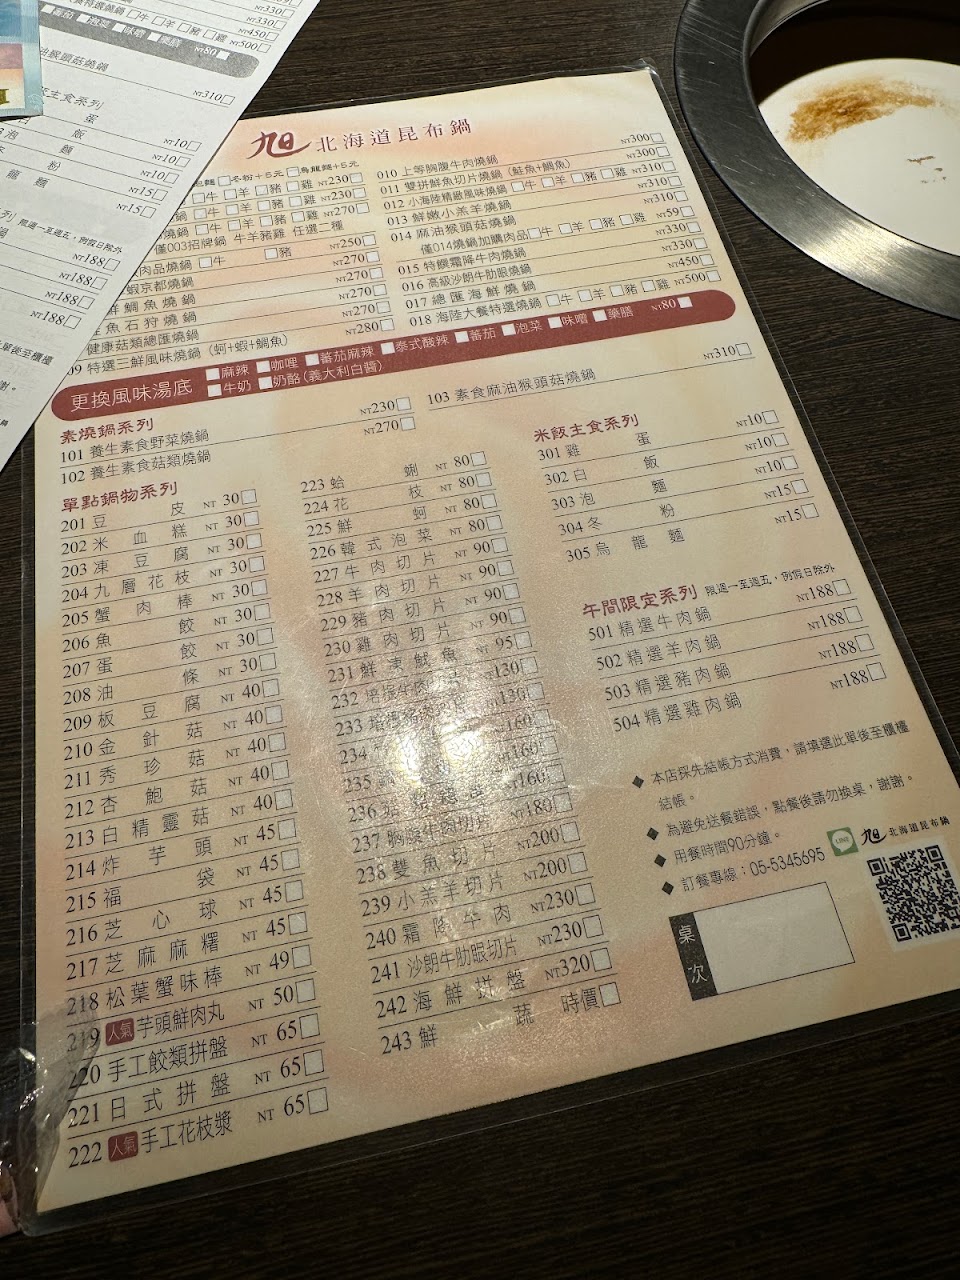 北海道昆布鍋
冬粉+5元 □烏龍麵+5元
□牛 □羊 □豬 □雞 NT230□
鍋 □牛 □羊 □豬 □雞 NT230□
燒鍋 □牛 □羊 □豬 □雞 NT270□
僅003招牌鍋 牛羊豬雞 任選二種
肉品燒鍋 □牛 □豬 NT250□
蝦京都燒鍋 NT270□
鮮鯛魚燒鍋 NT270□
魚石狩燒鍋 NT270□
健康菇類總匯燒鍋 NT270□
09 特選三鮮風味燒鍋 (蚵+蝦+鯛魚) NT280□
010 上等胸腹牛肉燒鍋 NT300□
011 雙拼鮮魚切片燒鍋 (鮭魚+鯛魚) NT300□
012 小海陸精緻風味燒鍋 □牛 □羊 □豬 □雞 NT310□
013 鮮嫩小羔羊燒鍋 NT310□
014 麻油猴頭菇燒鍋 NT310□
僅014燒鍋加購肉品□牛 □羊 □豬 □雞 NT59□
015 特饌霜降牛肉燒鍋 NT330□
016 高級沙朗牛肋眼燒鍋 NT330□
017 總匯海鮮燒鍋 NT450□
018 海陸大餐特選燒鍋 □牛 □羊 □豬 □雞 NT500□
更換風味湯底 □麻辣 □咖哩 □蕃茄麻辣 □泰式酸辣 □蕃茄 □泡菜 □味噌 □藥膳 NT80□
□牛奶 □奶酪(義大利白醬)
素燒鍋系列
101 養生素食野菜燒鍋 NT230□
102 養生素食菇類燒鍋 NT270□
103 素食麻油猴頭菇燒鍋 NT310□
單點鍋物系列
201 豆皮 NT 30□
202 米血糕 NT 30□
203 凍豆腐 NT 30□
204 九層花枝 NT 30□
205 蟹肉棒 NT 30□
206 魚餃 NT 30□
207 蛋餃 NT 30□
208 油條 NT 30□
209 板豆腐 NT 40□
210 金針菇 NT 40□
211 秀珍菇 NT 40□
212 杏鮑菇 NT 40□
213 白精靈菇 NT 40□
214 炸芋頭 NT 45□
215 福袋 NT 45□
216 芝心球 NT 45□
217 芝麻麻糬 NT 45□
218 松葉蟹味棒 NT 49□
219 人氣 芋頭鮮肉丸 NT 50□
220 手工餃類拼盤 NT 65□
221 日式拼盤 NT 65□
222 人氣 手工花枝漿 NT 65□
223 蛤蜊 NT 80□
224 花枝 NT 80□
225 鮮蚵 NT 80□
226 韓式泡菜 NT 80□
227 牛肉切片 NT 90□
228 羊肉切片 NT 90□
229 豬肉切片 NT 90□
230 雞肉切片 NT 90□
231 鮮凍魷魚 NT 95□
232 NT130□
233 NT130□
234 NT160□
235 NT160□
236 NT160□
237 胸腹牛肉切片 NT180□
238 雙魚切片 NT200□
239 小羔羊切片 NT200□
240 霜降牛肉 NT230□
241 沙朗牛肋眼切片 NT230□
242 海鮮拼盤 NT320□
243 鮮蔬 時價□
米飯主食系列
301 雞蛋 NT10□
302 白飯 NT10□
303 泡麵 NT10□
304 冬粉 NT15□
305 烏龍麵 NT15□
午間限定系列 限週一至週五,例假日除外
501 精選牛肉鍋 NT188□
502 精選羊肉鍋 NT188□
503 精選豬肉鍋 NT188□
504 精選雞肉鍋 NT188□
◆ 本店採先結帳方式消費,請填選此單後至櫃檯
結帳。
◆ 為避免送餐錯誤,點餐後請勿換桌,謝謝。
◆ 用餐時間90分鐘。
◆ 訂餐專線:05-5345695
LINE
旭 北海道昆布鍋
桌次
NT330□
□牛 □羊 □豬 □雞 NT450□
NT500□
□味噌 □藥膳 NT80□
油猴頭菇燒鍋 NT310□
主食系列
蛋 NT10□
飯 NT10□
麵 NT10□
粉 NT15□
龍麵 NT15□
限週一至週五,例假日除外
NT188□
NT188□
NT188□
NT188□
單後至櫃檯
謝。